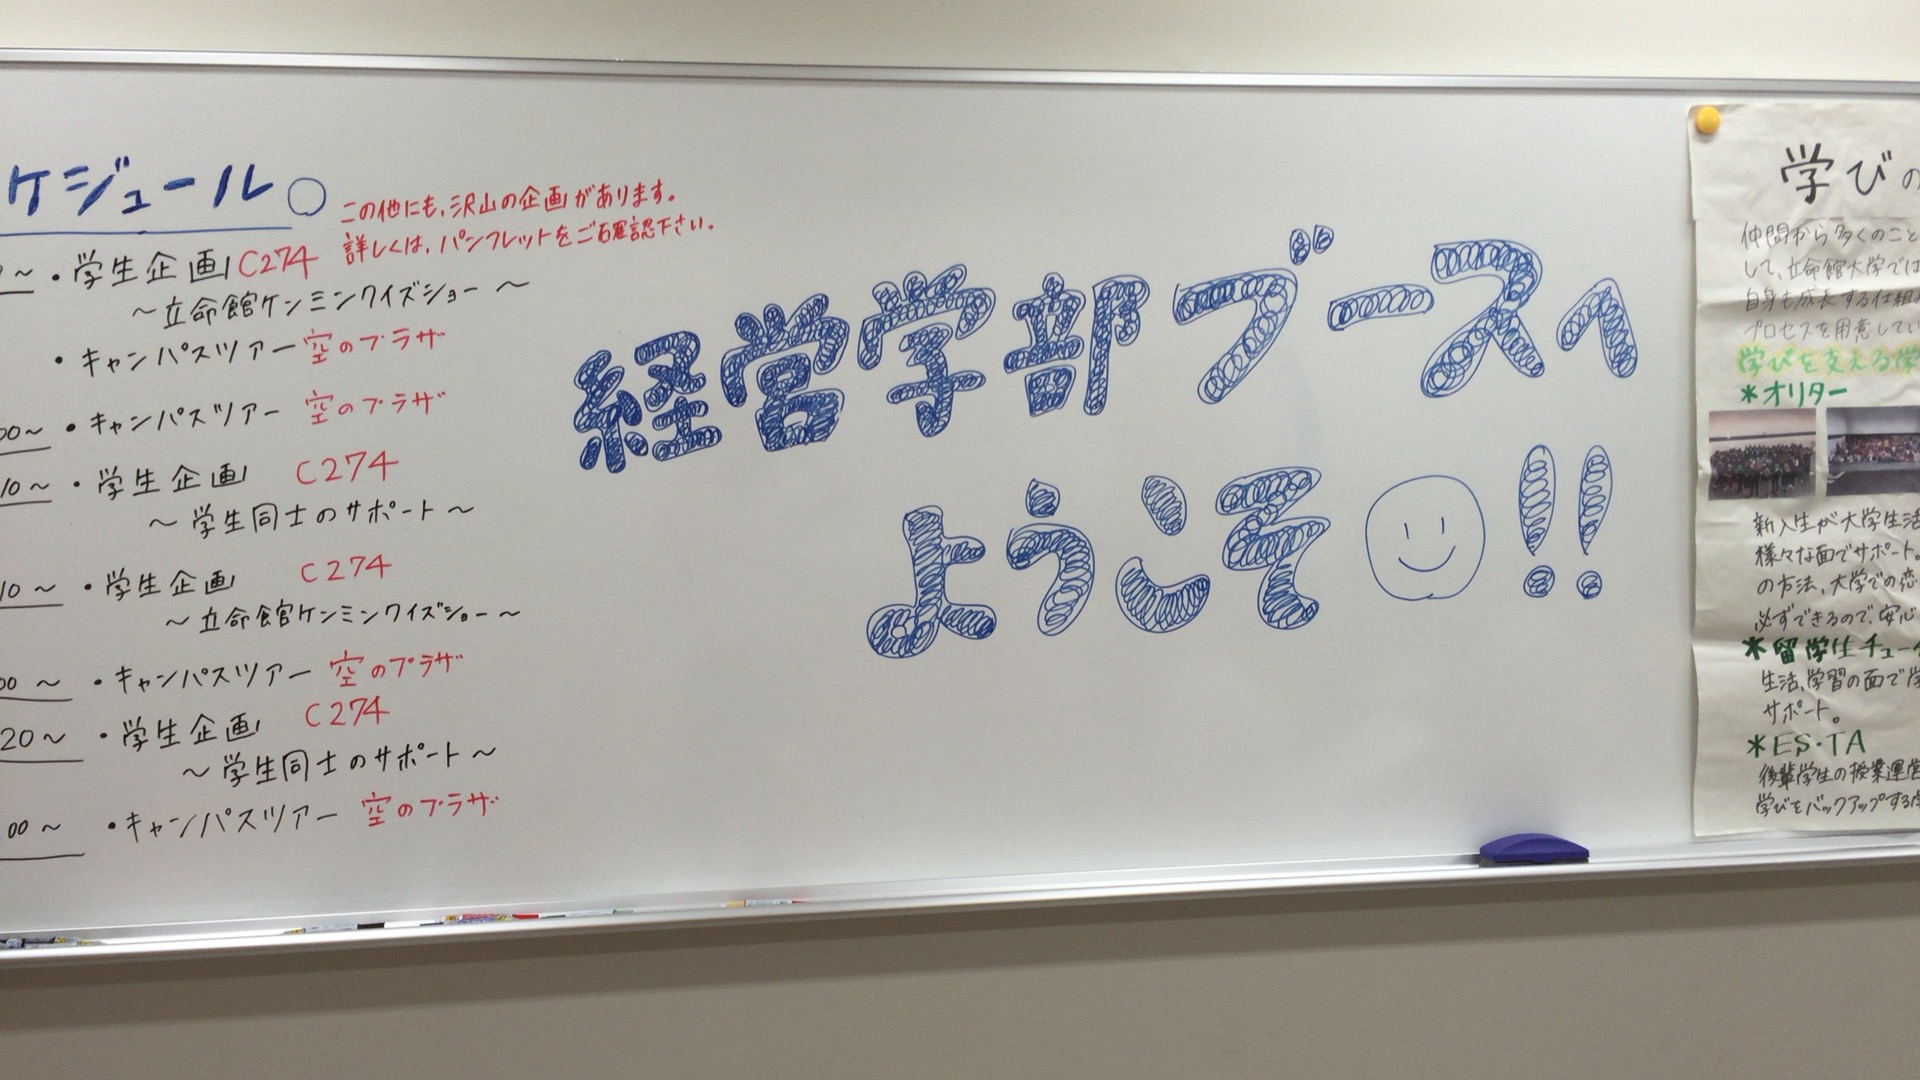 ケジュール○
この他にも、沢山の企画があります。
詳しくは、パンフレットをご確認下さい。
〜・学生企画 C274
〜立命館ケンミンクイズショー〜
・キャンパスツアー 空のプラザ
00〜・キャンパスツアー 空のプラザ
10〜・学生企画 C274
〜学生同士のサポート〜
10〜・学生企画 C274
〜立命館ケンミンクイズショー〜
00〜・キャンパスツアー 空のプラザ
20〜・学生企画 C274
〜学生同士のサポート〜
00〜・キャンパスツアー 空のプラザ
経営学部ブースへ
ようこそ!!
学びの
仲間から多くのこと
して、立命館大学では
自身も成長する仕組
プロセスを用意してい
学びを支える学
*オリター
新入生が大学生活
様々な面でサポート。
の方法、大学での恋
必ずできるので、安心
*留学生チュー
生活、学習の面で学
サポート。
*ES・TA
後輩学生の授業運営
学びをバックアップする